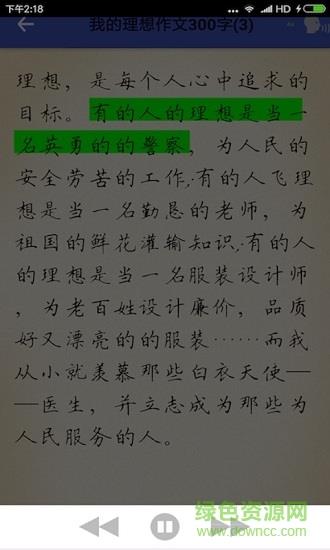 下午2:18
我的理想作文300字(3)
理想，是每个人心中追求的
目标。有的人的理想是当一
名英勇的的警察，为人民的
安全劳苦的工作;有的人飞理
想是当一名勤恳的老师，为
祖国的鲜花灌输知识;有的人
的理想是当一名服装设计师
，为老百姓设计廉价，品质
好又漂亮的的服装……而我
从小就羡慕那些白衣天使—
—医生，并立志成为那些为
人民服务的人。
绿色资源网
www.downcc.com